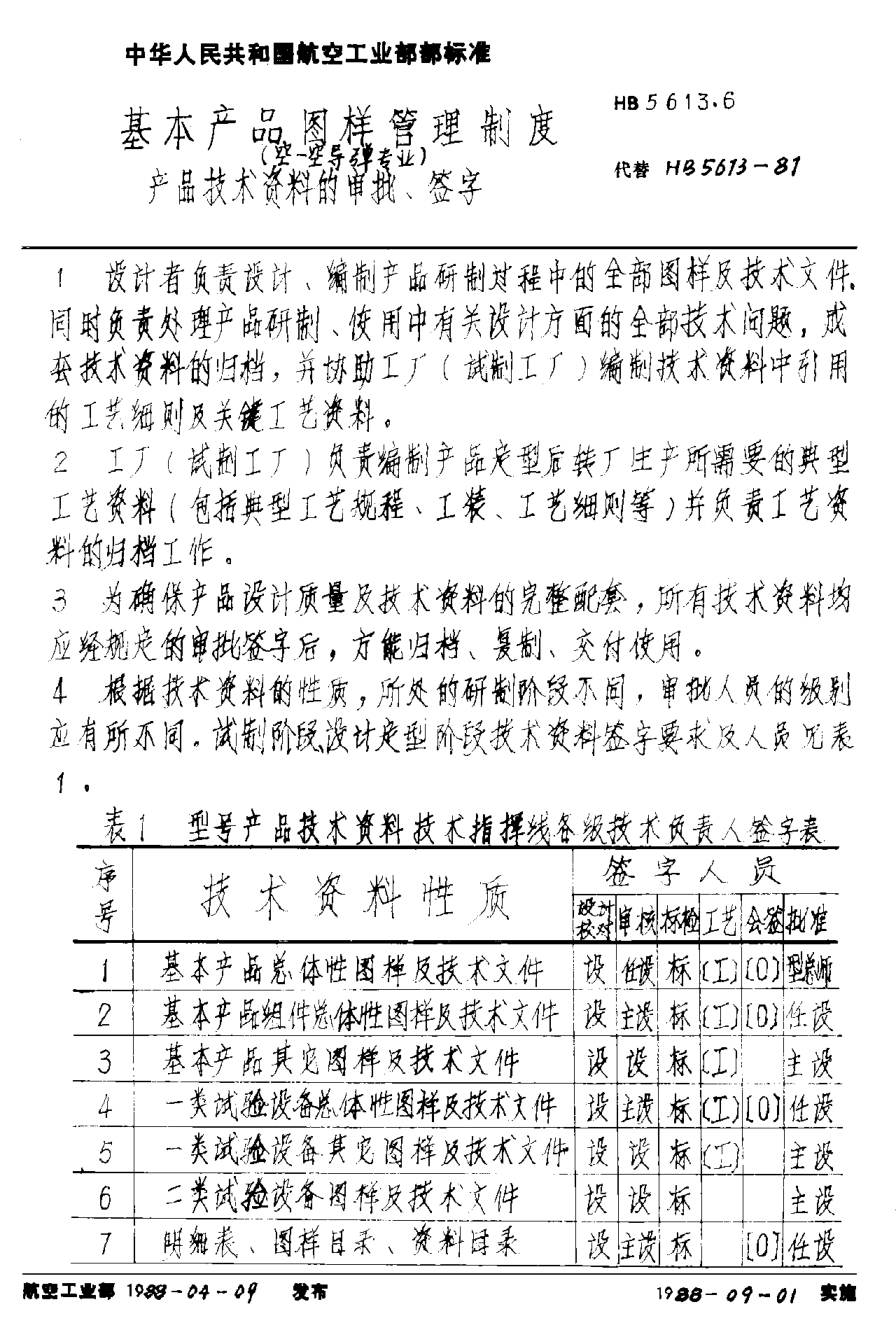 中华人民共和国航空工业部部标准
HB 5613.6
基本产品图样管理制度
(空-空导弹专业)
代替 HB 5613-81
产品技术资料的审批、签字
1 设计者负责设计、编制产品研制过程中的全部图样及技术文件,
同时负责处理产品研制、使用中有关设计方面的全部技术问题,成
套技术资料的归档,并协助工厂(试制工厂)编制技术资料中引用
的工艺细则及关键工艺资料。
2 工厂(试制工厂)负责编制产品定型后转厂生产所需要的典型
工艺资料(包括典型工艺规程、工装、工艺细则等)并负责工艺资
料的归档工作。
3 为确保产品设计质量及技术资料的完整配套,所有技术资料均
应经规定的审批签字后,方能归档、复制、交付使用。
4 根据技术资料的性质,所处的研制阶段不同,审批人员的级别
应有所不同。试制阶段、设计定型阶段技术资料签字要求及人员见表
1。
表1 型号产品技术资料技术指挥线各级技术负责人签字表
序号 技术资料性质 签字人员
设计校对 审核 标检 工艺 会签 批准
1 基本产品总体性图样及技术文件 设 任设 标 (工) [0] 型总师
2 基本产品组件总体性图样及技术文件 设 主设 标 (工) [0] 任设
3 基本产品其它图样及技术文件 设 设 标 (工) 主设
4 一类试验设备总体性图样及技术文件 设 主设 标 (工) [0] 任设
5 一类试验设备其它图样及技术文件 设 设 标 (工) 主设
6 二类试验设备图样及技术文件 设 设 标 主设
7 明细表、图样目录、资料目录 设 主设 标 [0] 任设
航空工业部 1988-04-09 发布 1988-09-01 实施